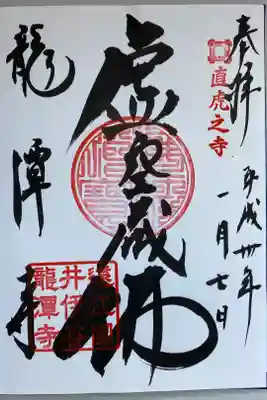 奉拝
直虎之寺
平成卅年
一月七日
虚空蔵佛
龍潭寺
井伊谷
龍潭寺